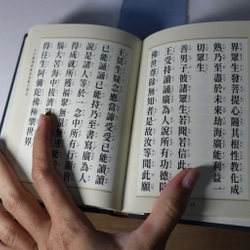 界眾生發菩提心隨其根性教化成
熟乃至盡於未來劫海廣能利益一
切眾生
善男子彼諸眾生若聞若信此大願
王受持讀誦廣為人說所有功德除
佛世尊餘無知者是故汝等聞此願
王莫生疑念應當諦受受已能讀讀
已能誦誦已能持乃至書寫廣為人
說是諸人等於一念中所有行願皆
得成就所獲福聚無量無邊
惱大苦海中拔濟
得往生阿彌陀佛極樂世界